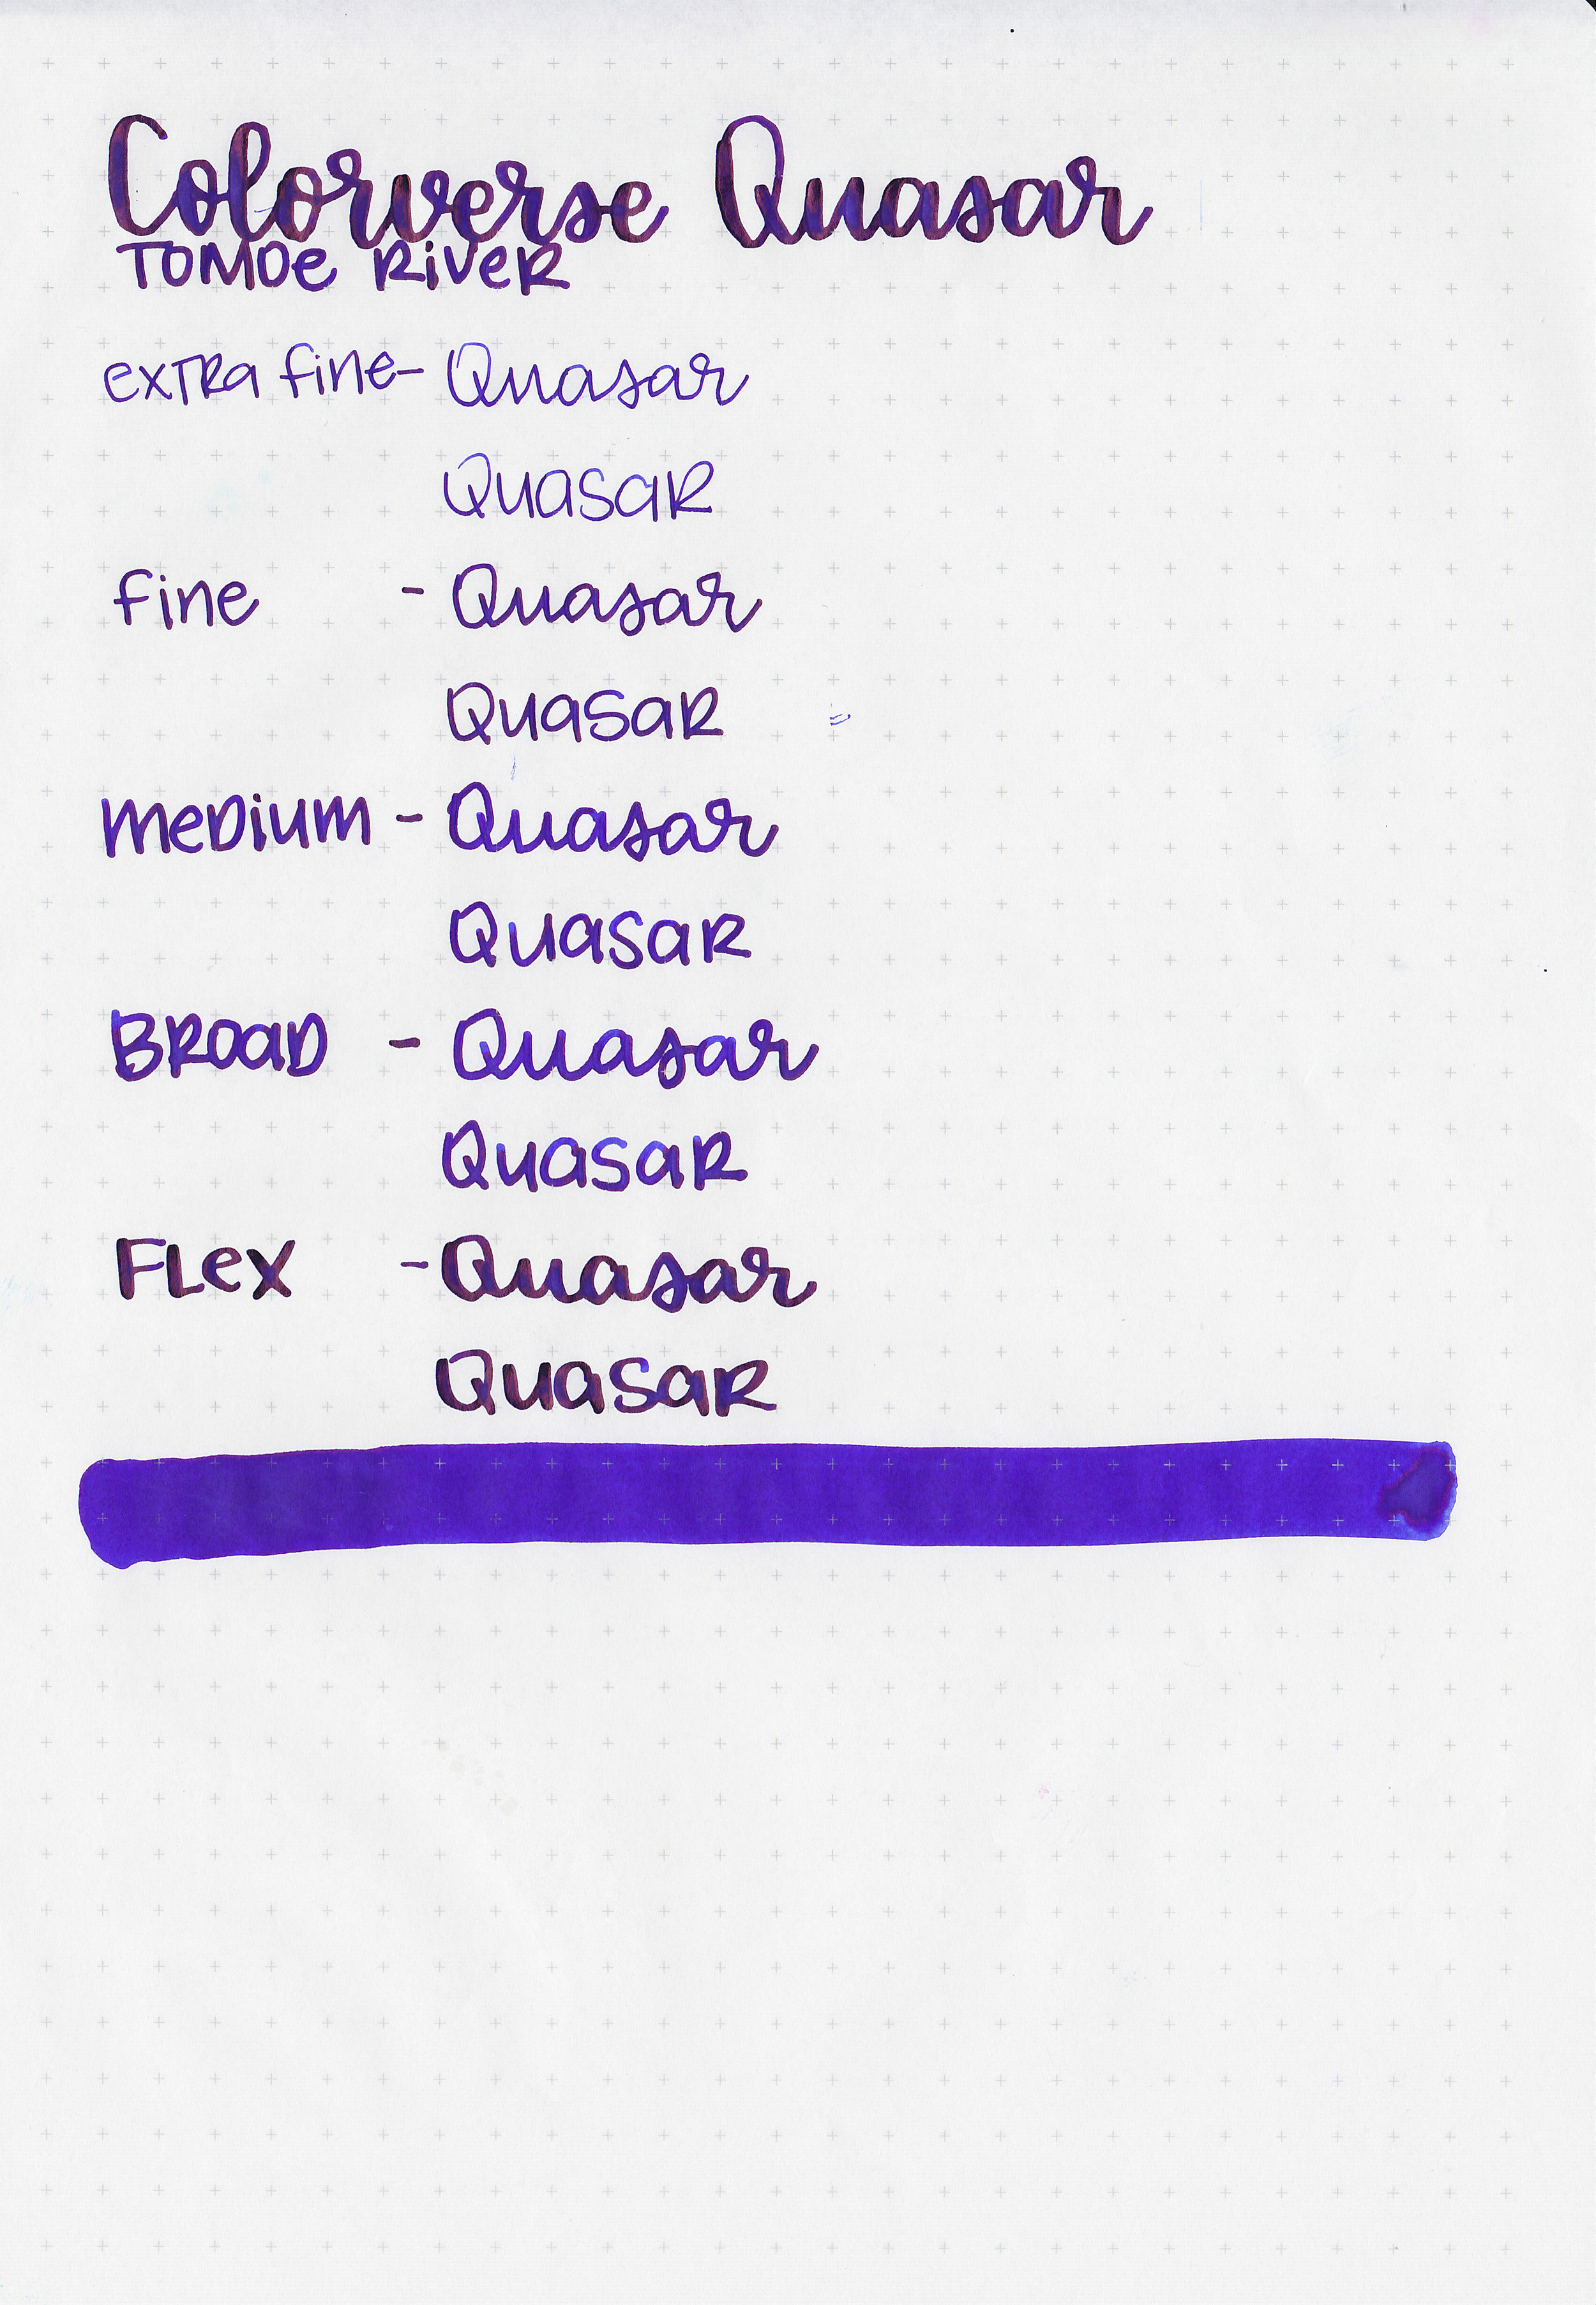 Colorverse Quasar
TOMOe RiveR
exTRa fine- Quasar
QuasaR
fine - Quasar
QuasaR
meDium - Quasar
QuasaR
BRoaD - Quasar
QuasaR
FLex - Quasar
QuasaR